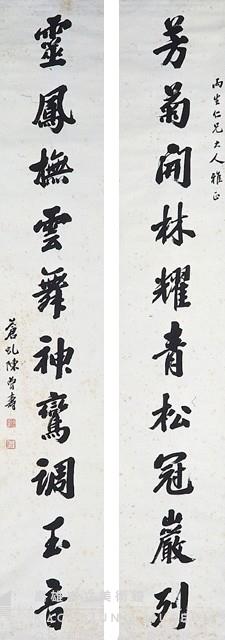 丙生仁兄大人雅正
芳菊開林耀青松冠巖列
靈鳳撫雲舞神鸞調玉音
蒼虬陳曾壽